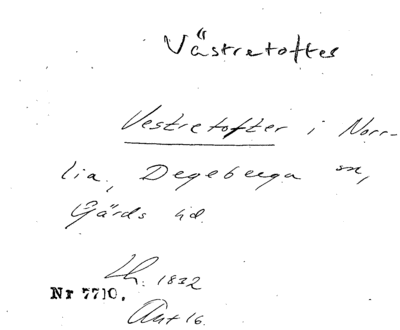 Västretoftes
Vestretofter i Norr-
lia, Degeberga sn,
Gärds hd.
Lh. 1832
Nr 7710.
Akt 16.